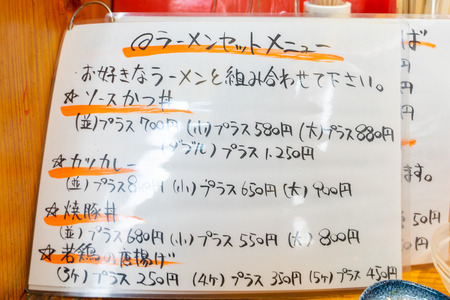 @ラーメンセットメニュー
お好きなラーメンと組み合わせて下さい。
☆ソースかつ丼
(並)プラス700円 (小)プラス580円 (大)プラス880円
(ダブル)プラス1.250円
☆カツカレー
(並)プラス800円 (小)プラス650円 (大)900円
☆焼豚丼
(並)プラス680円 (小)プラス550円 (大)800円
☆若鶏の唐揚げ
(3ヶ)プラス250円 (4ヶ)プラス350円 (5ヶ)プラス450円
ば
円
円
ます。
50円